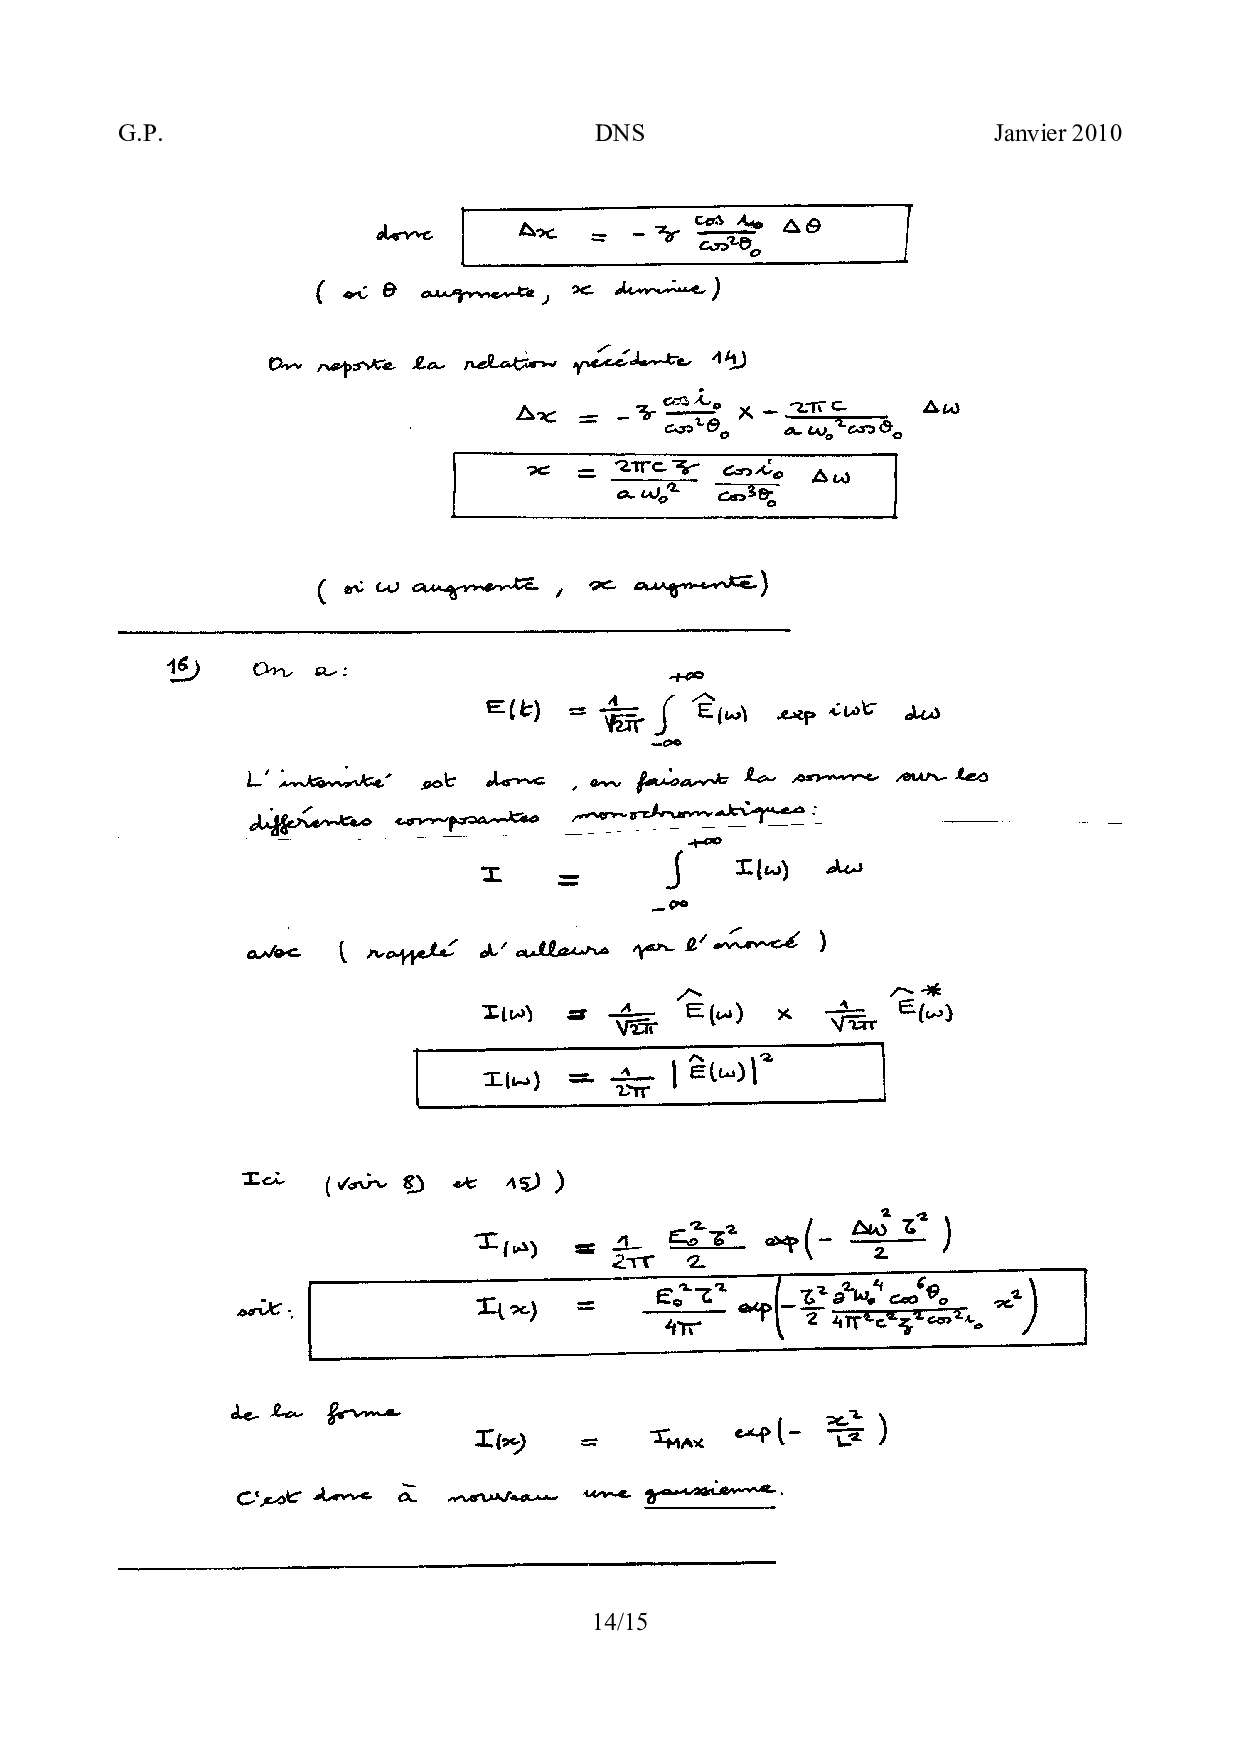 G.P. DNS Janvier 2010
donc Δx = - z cos i₀ / cos²θ₀ Δθ
( si θ augmente, x diminue )
On reporte la relation précédente 14)
Δx = - z cos i₀ / cos²θ₀ × - 2πc / a ω₀² cos θ₀ Δω
x = 2πc z / a ω₀² cos i₀ / cos³θ₀ Δω
( si ω augmente, x augmente )
16) On a :
E(t) = 1/√2π ∫_{-∞}^{+∞} Ê(ω) exp iωt dω
L'intensité est donc, en faisant la somme sur les
différentes composantes monochromatiques :
I = ∫_{-∞}^{+∞} I(ω) dω
avec ( rappelé d'ailleurs par l'énoncé )
I(ω) = 1/√2π Ê(ω) × 1/√2π Ê*(ω)
I(ω) = 1/2π |Ê(ω)|²
Ici (voir 8) et 15) )
I(ω) = 1/2π E₀²τ²/2 exp(- Δω² τ²/2 )
soit : I(x) = E₀²τ²/4π exp(- τ²/2 a²ω₀⁴ cos⁶θ₀ / 4π²c²z² cos²i₀ x²)
de la forme
I(x) = I_MAX exp(- x²/L² )
C'est donc à nouveau une gaussienne.
14/15